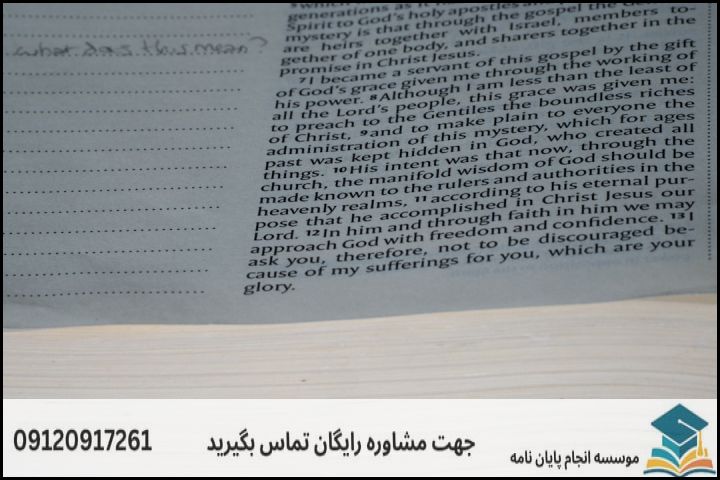 what does this mean?
generations as it
Spirit to God's holy apostles
mystery is that through the gospel the
are heirs together with Israel, members to-
gether of one body, and sharers together in the
promise in Christ Jesus.
7I became a servant of this gospel by the gift
of God's grace given me through the working of
his power. 8Although I am less than the least of
all the Lord's people, this grace was given me:
to preach to the Gentiles the boundless riches
of Christ, 9and to make plain to everyone the
administration of this mystery, which for ages
past was kept hidden in God, who created all
things. 10His intent was that now, through the
church, the manifold wisdom of God should be
made known to the rulers and authorities in the
heavenly realms, 11according to his eternal pur-
pose that he accomplished in Christ Jesus our
Lord. 12In him and through faith in him we may
approach God with freedom and confidence. 13I
ask you, therefore, not to be discouraged be-
cause of my sufferings for you, which are your
glory.
موسسه انجام پایان نامه
جهت مشاوره رایگان تماس بگیرید
09120917261